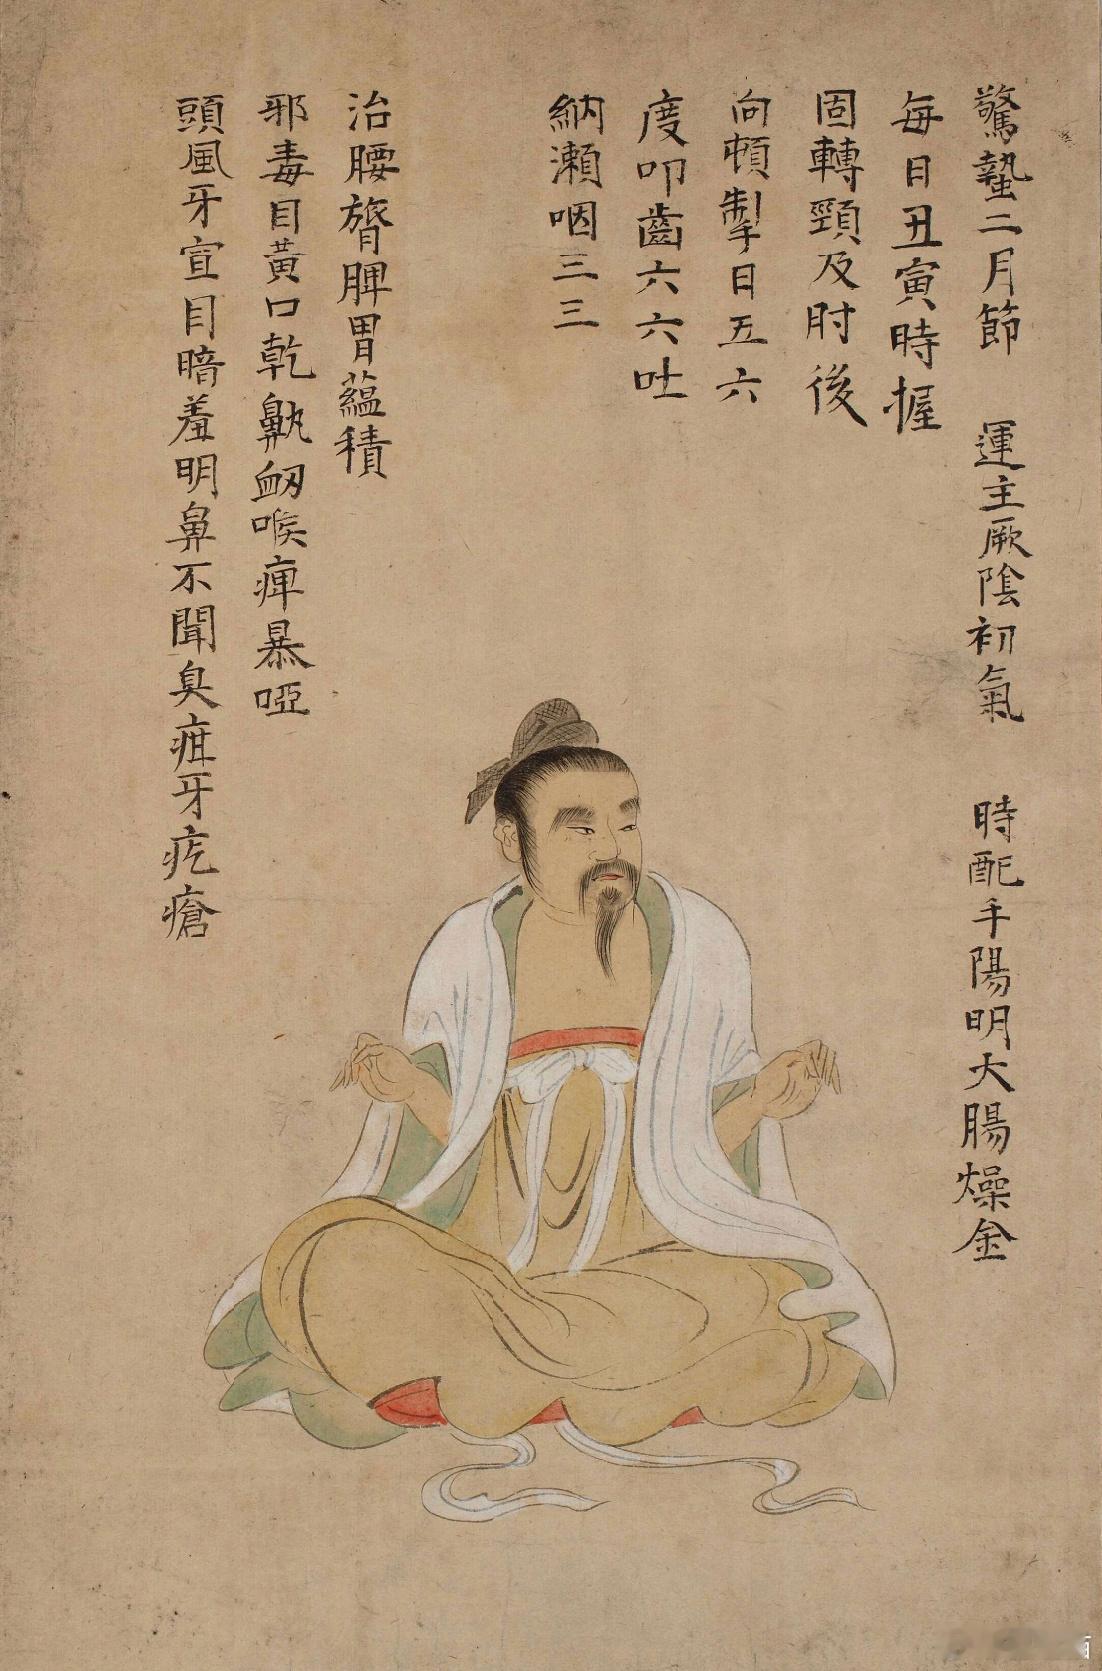 驚蟄二月節 運主厥陰初氣 時配手陽明大腸燥金
每日丑寅時握
固轉頸及肘後
向頓掣日五六
度叩齒六六吐
納瀨咽三三
治腰膂脾胃蘊積
邪毒目黃口乾鼽衂喉痺暴啞
頭風牙宣目暗羞明鼻不聞臭疳牙疙瘡